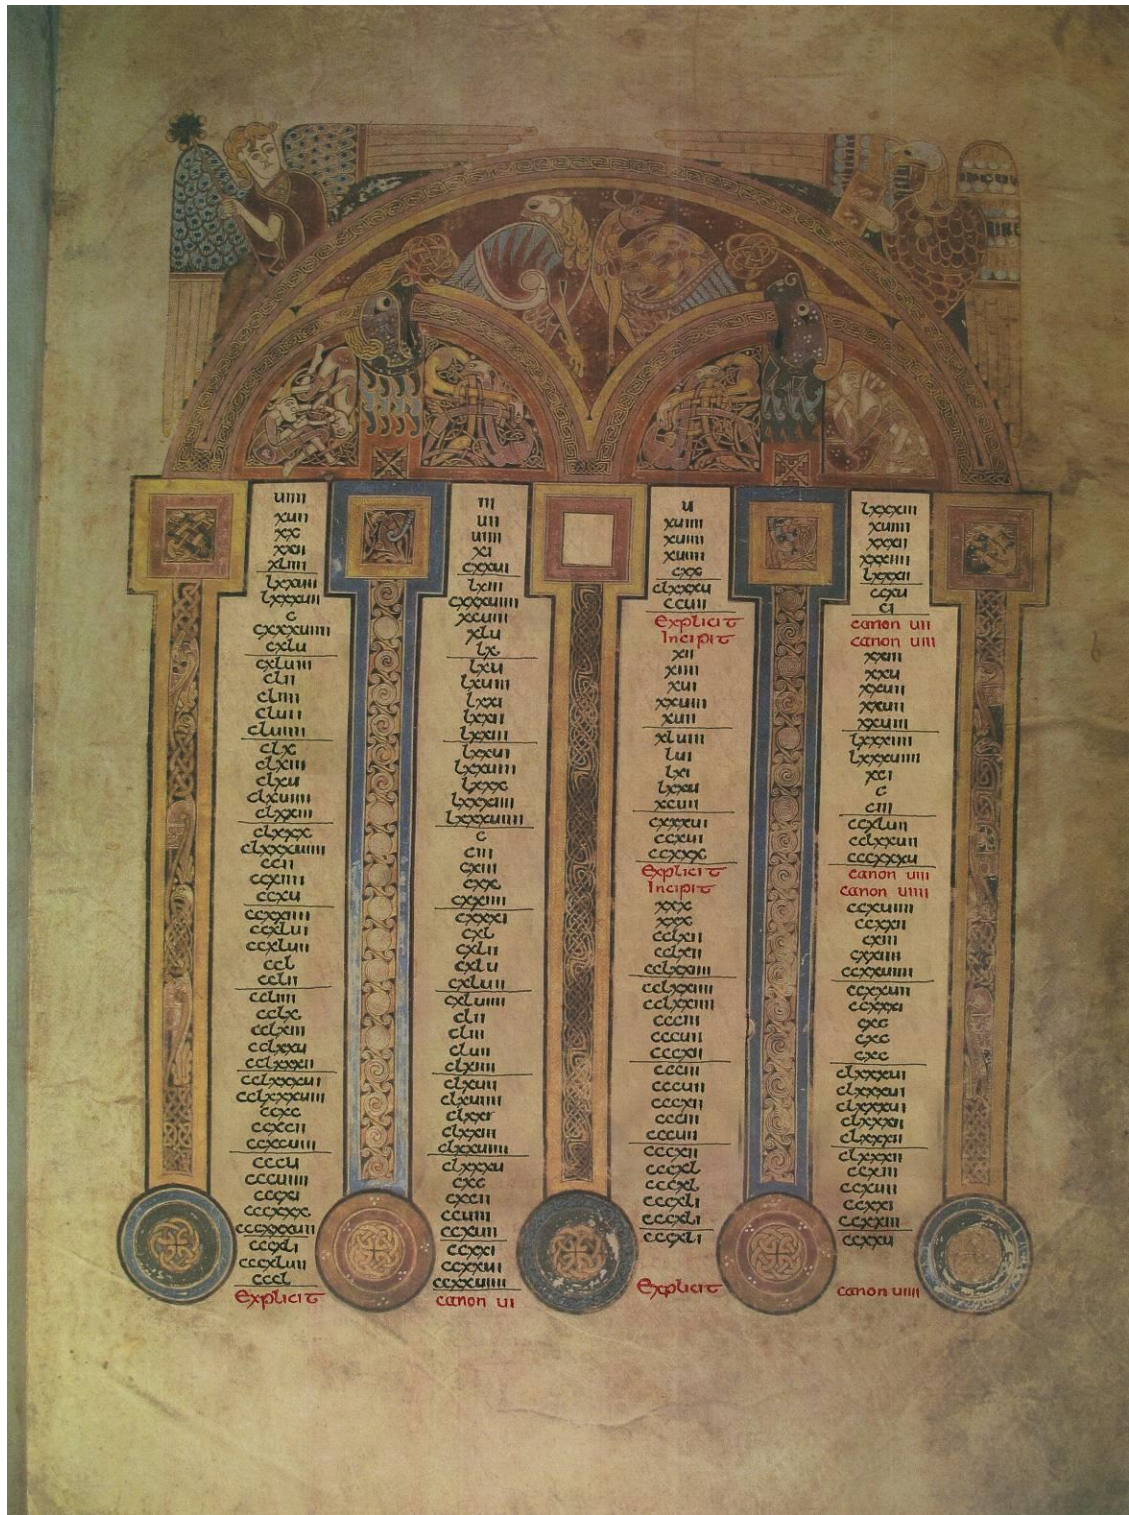 uiiii
xuii
xx
xxii
xliiii
lxxuiii
lxxxuii
c
cxxxuiiii
cxlu
cxluiii
clii
cliiii
cluii
cluiiii
clx
clxiii
clxu
clxuiiii
clxxiii
clxxx
clxxxuiiii
ccii
ccxiiii
ccxu
ccxxiiii
ccxlui
ccxluii
ccl
cclii
ccliiii
cclx
cclxiii
cclxxu
cclxxxii
cclxxxui
cclxxxuiiii
ccxc
ccxcii
ccxcuiiii
cccu
cccuiiii
cccxi
cccxxx
cccxxxuii
cccxli
cccxluii
cccl
Explicit
iii
uii
uiiii
xi
cxxui
lxiii
cxxxuiiii
xcuiii
xlu
lx
lxu
lxuiii
lxxi
lxxii
lxxiii
lxxui
lxxuiiii
lxxx
lxxxiiii
lxxxuiiii
c
ciii
cxiii
cxx
cxxiiii
cxxxi
cxl
cxlii
cxlu
cxluii
cxluiiii
clii
cliii
cluii
clxiiii
clxuii
clxuiiii
clxxi
clxxiii
clxxuiiii
clxxxu
cxc
cxcii
ccuiii
ccxuii
ccxxi
ccxxui
ccxxuiiii
canon ui
u
xuiiii
xuiiii
xuiiii
cxx
clxxxu
ccuii
Explicit
Incipit
xii
xiiii
xui
xxuiiii
xuiii
xluiii
lui
lxi
lxxu
xcuii
cxxxui
ccxui
ccxxx
Explicit
Incipit
xxx
xxx
cclxii
cclxii
cclxxiiii
cclxxiiii
cclxxiiii
ccciii
cccuii
cccxii
ccciii
cccuii
cccxii
ccciii
cccuii
cccxii
cccxl
cccxl
cccxli
cccxli
cccxli
Explicit
lxxxiii
xuiiii
xxxii
xxxiiii
lxxxii
ccxu
ci
canon uii
canon uiii
xxiii
xxu
xxuii
xxuii
xxuiii
lxxxiiii
lxxxuiiii
xci
c
ciii
ccxluii
cclxxuii
cccxxxu
canon uiii
canon uiiii
ccxuiiii
ccxxii
cxiii
cxxiiii
ccxxuiiii
ccxxuii
ccxxxi
cxc
cxc
cxc
clxxxui
clxxxui
clxxxui
clxxxii
clxxxii
clxxxii
ccxiii
ccxuiii
ccxxi
ccxxiii
ccxxu
canon uiiii